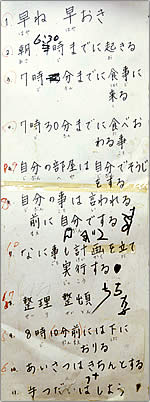 早ね 早おき
2. 朝 6:30 時までに起きる
3. 7時 分までに食事に
来る
7時30分までに食べお
わる事
自分の部屋は自分でそうじ
をする
自分の事は言われる
前に自分でする
なに事も計画を立て
実行する
整理 整頓
8時10分前には下に
おりる
あいさつはきちんとする
手つだいはしよう